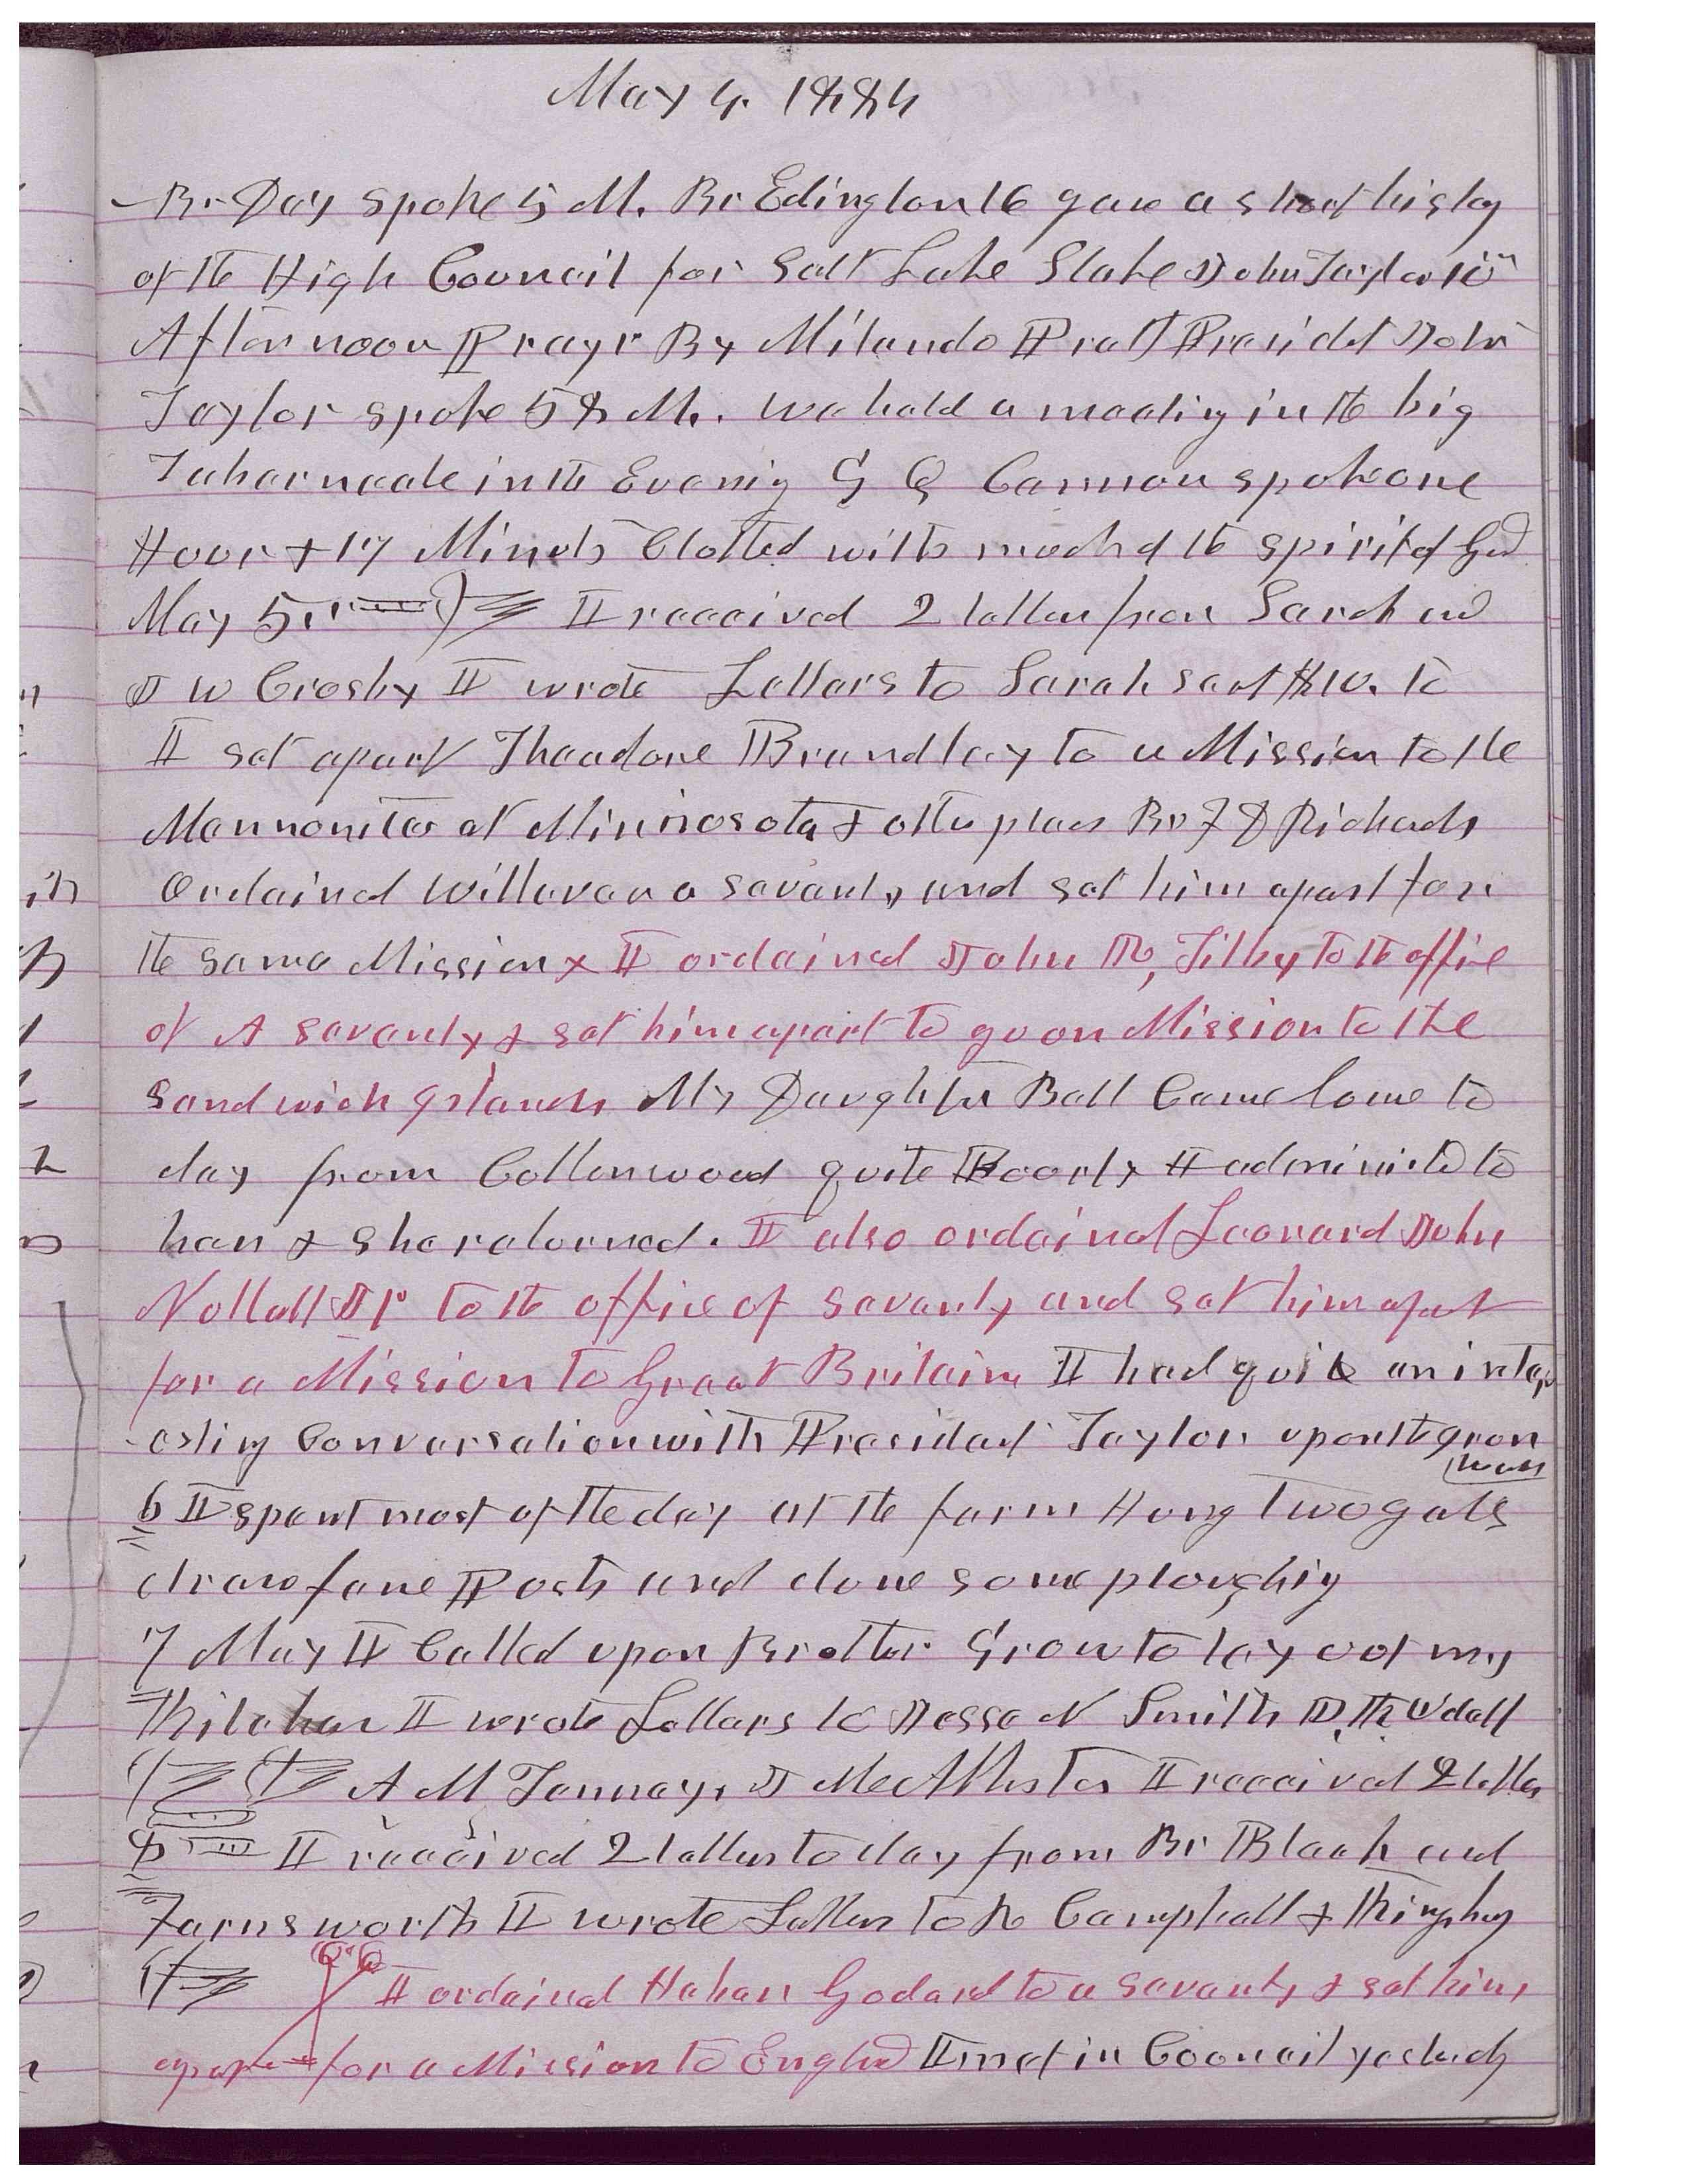 May 4. 1884
Br Day spoke 5 M. Br Edington 16 gave a short histoy
of the High Council for Salt Lake Stake John Taylor 10 m
Afternoon Prayr By Milando Pratt Presidet John
Taylor spoke 58 M. we held a meeting in the big
Tabernacle in the Evenig G Q Cannon spoke one
Hour & 17 Minuts Clotted with much of the spirit of God
May 5. I received 2 letters from Sarah and
J W Crosby I wrote Letters to Sarah sent $10. to
I set apart Theadore Brandley to a Mission to the
Mennonites at Minnesota & other places Br F D Richards
Ordained a seventy, and set him apart for
the same Mission I ordained John R, Tilby to the office
of A seventy & set him apart to go on Mission to the
Sandwich Islands My Daughter Bell Came home to
day from Cottonwood quite Poorly I administed to
her & she returned. I also ordained Leonard John
Nuttall Jr to the office of seventy and set him apart
for a Mission to Great Britain I had quite an inter
-esting Conversation with President Taylor upon the
6 I spent most of the day at the farm Hung Two gates
drew fence Posts and done some ploughig
7 May I Called upon Brother Grow to lay out my
Kitchen I wrote Letters to Jesse N Smith D, K Udall
A M Tenney, J McAllister I received 2 letters
8 I received 2 letters to day from Br Black and
Farnsworth I wrote Letters to R Campbell & Kingsbury
I ordained Heber Godard to a seventy & set him
apart for a Mission to England I met in Council yesterdy